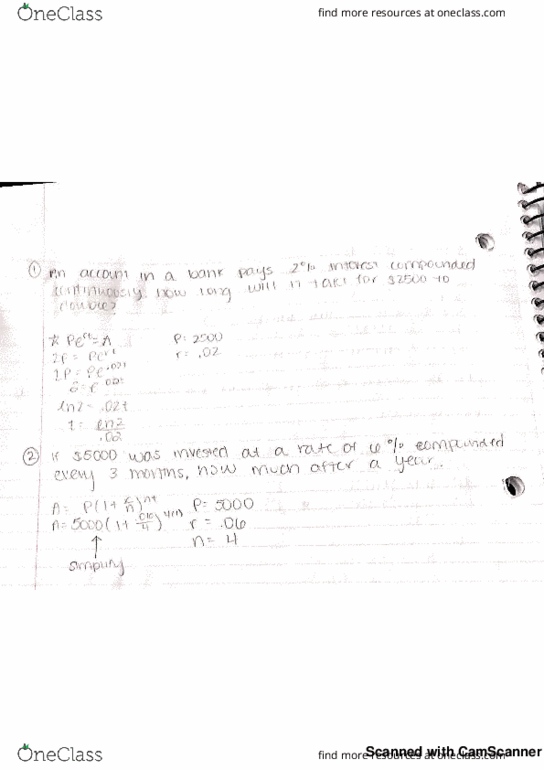 OneClass
find more resources at oneclass.com
① An account in a bank pays 2% interest compounded
continuously how long will it take for $2500 to
double?
* Pe^rt = A P: 2500
2P = Pe^rt r = .02
2P = Pe^.02t
2 = e^.02t
ln2 = .02t
t = ln2/.02
② If $5000 was invested at a rate of 6% compounded
every 3 months, how much after a year.
A = P(1 + r/n)^nt P = 5000
A = 5000(1 + .06/4)^4(1) r = .06
↑ n = 4
simplify
OneClass
find more resources at oneclass.com
Scanned with CamScanner